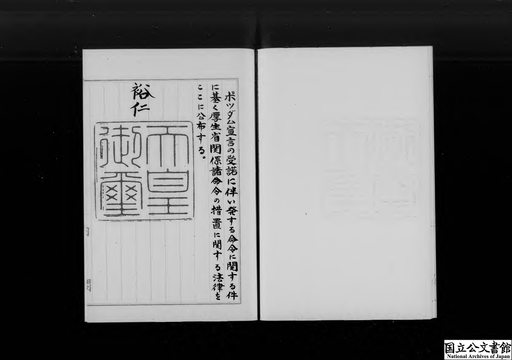 ポツダム宣言の受諾に伴い発する命令に関する件
に基く厚生省関係諸命令の措置に関する法律を
ここに公布する。
裕仁
天皇
御璽
国立公文書館
National Archives of Japan